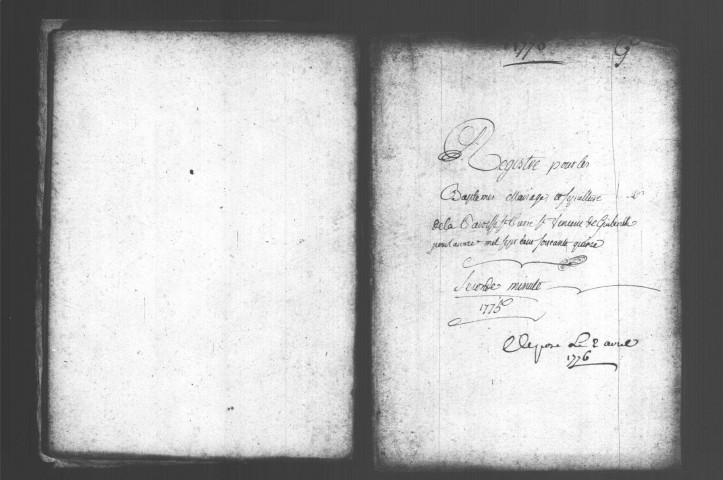 1775
Registre pour les
Baptemes Mariages et sepulture
de la Paroisse St Pierre St de
pour annee mil sept cent soixante quinze
Seconde minute
1775
Depose Le 2 avril
1776